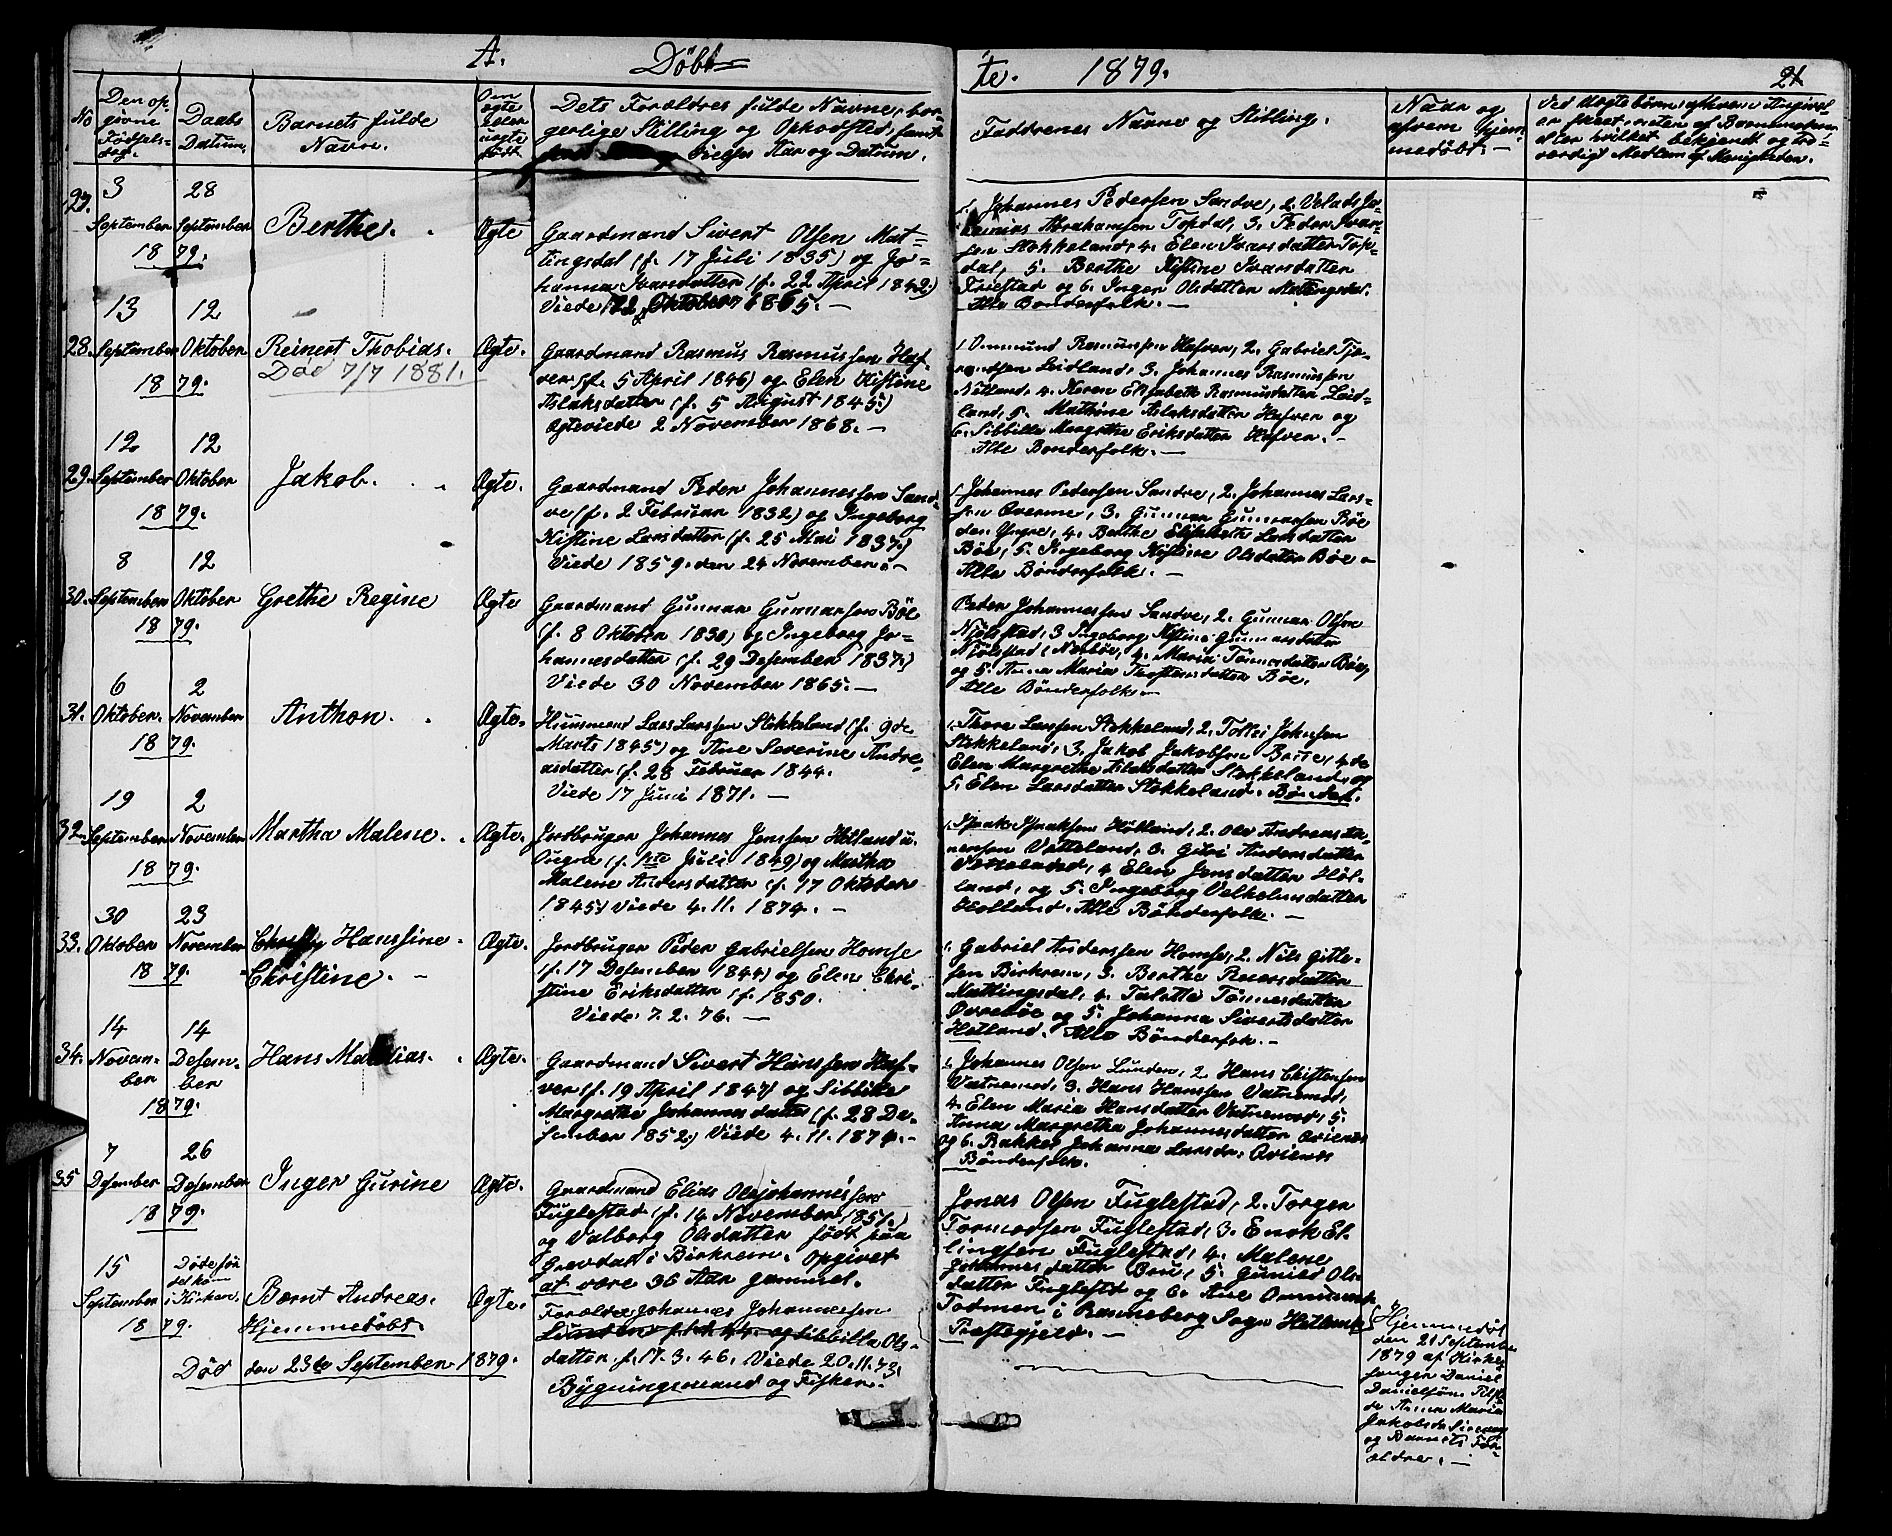 A. Døb=
te. 1879.
21
No
Den op
givne
Fødsels-
dag.
Daabs
Datum.
Barnets fulde
Navn.
Om
ægte
eller
uægte
født
Dets Forældres fulde Navne, bor-
gerlige Stilling og Opholdsted, samt
vielses Aar og Datum.
Faddrenes Navne og Stilling.
Naar og
afvem hjem-
medøbt. -
Ved Uægte børn, afhvem Angivel
er skeet, neten af Barnmoderen
eller hvilket bekjendt og tro=
værdigt Medlem af Menigheden.
27.
3
September
18
28
September
79.
Berthe.
Ægte
Gaardmand Sivert Olsen Mat=
tingsdal (f. 17 Juli 1835) og Jo=
hanna Ivarsdatter (f. 22 April 1842)
Viede 22 Oktober 1865. -
1. Johannes Pedersen Sandve, 2.
Abrahamsen Topdal, 3. Peder Ivar-
sen Stokkeland, 4. Elen Ivarsdatter Top-
dal, 5. Berthe Kistine Ivarsdatter
Friestad og 6. Inger Olsdatter Mattingsdal.
Alle Bønderfolk. -
28.
13
September
18
12
Oktober
79.
Reinert Thobias.
Død 7/7 1881.
Ægte.
Gaardmand Rasmus Rasmussen Haf-
ver. (f. 5 April 1846) og Elen Kistine
Aslaksdatter (f. 5 August 1845.)
Ægteviede 2 November 1868. -
1. Ommund Rasmussen Hafver, 2. Gabriel
Leidland, 3. Johannes Rasmussen
Netland, 4. Karen Elisabeth Rasmusdatter Leid-
land, 5. Mathine Aslaksdatter Hafver og
6. Sibbille Margrethe Eriksdatter Hafver. -
Alle Bønderfolk. -
29.
12
September
18
12
Oktober
79.
Jakob.
Ægte.
Gaardmand Peder Johannessen Sand
ve (f. 2 Februar 1832) og Ingeborg
Kistine Larsdatter (f. 25 Mai 1837.)
Viede 1859. den 24 November. -
1. Johannes Pedersen Sandve, 2. Johannes Lars-
sen 3. Gunnar Gunnarsen Bøe
den Yngre, 4. Berthe Elisabeth Larsdatter
Bøe, 5. Ingeborg Kistine Olsdatter Bøe -
Alle Bønderfolk. -
30.
8
September
18
12
Oktober
79.
Grethe Regine
Ægte
Gaardmand Gunnar Gunnarsen Bøe
(f. 8 Oktober 1830) og Ingeborg Jo-
hannesdatter (f. 29 Desember 1837.)
Viede 30 November 1865. -
Peder Johannessen Sandve, 2. Gunnar Olsen
Njølstad, 3 Ingeborg Kistine Gunnarsdatter
Njølstad (Nærbø, 4. Maria Tønnesdatter Bøe,
og 5. Anna Maria Torstensdatter Bøe.
Alle Bønderfolk. -
31.
6
Oktober.
18
2
November
79.
Anthon.
Ægte.
Huusmand Lars Larssen Stokkeland (f. 9de
Marts 1845) og Ane Severine Andre-
asdatter (f. 28 Februar 1844.
Viede 17 Juni 1871. -
1. Thore Larssen Stokkeland, 2. Tollei Johnsen
Stokkeland, 3. Jakob Jakobsen 4 de
Elen Margrethe Aslaksdatter Stokkeland, og
5. Elen Larsdatter Stokkeland. Bønder.
32.
19
September
18
2
November
79.
Martha Malene.
Ægte.
Jordbruger Johannes Jenssen Hetland u.
(f. 1ste Juli 1849) og Martha
Malene Andersdatter (f. 17 Oktober
1845) Viede 4. 11. 1874. -
1. Isaak Isaaksen Høtland, 2. Ole Andreas
Vatteland, 3. Gitri Andersdatter
4 Elen Jensdatter Høt-
land, og 5. Ingeborg Velhelmsdatter
Hotland. Alle Bønderfolk. -
33.
30
Oktober
18
23
November
79.
Hanssine
Christine. -
Ægte.
Jordbruger Peder Gabrielsen Homse
(f. 17 Desember 1844) og Elen Chri-
stine Eriksdatter (f. 1850.
Viede. 7. 2. 76. -
1. Gabriel Anderssen Homse, 2. Nils Gitle-
sen Birkrem, 3. Berthe Reiersdatter
Mattingsdal, 4. Talette Tønnesdatter
Ovrebøe og 5. Johanna Sivertsdatter
Hetland. Alle Bønderfok. -
34.
14
Novem-
ber
18
14
Desem-
ber
79.
Hans Mathias.
Ægte.
Gaardmand Sivert Hanssen Haf-
ver (f. 19 April 1847) og Sibbille
Margrethe Johannesdatter (f. 28 De-
sember 1852.) Viede 4. 11. 1874. -
1. Johannes Olsen Lunden, 2 Hans Christensen
Vatnemod, 3. Hans Hanssen Vatnemod,
4. Elen Maria Hansdatter Vatnemod, 5.
Anna Margretha Johannesdatter
og 6. Rakkel Johanna Larsdr.
Bønderfolk.
35
7
Desember
18
26
Desember
79.
Inger Gurine
Ægte.
Gaardmand Elias Olejohannessen
Fuglestad (f. 14 November 1851.)
og Valborg Olsdatter født paa
Grevdal i Birkrem. Opgivet
at være 36 Aar gammel.
Jonas Olsen Fuglestad, 2. Torger
Tormodsen Fuglestad, 3. Enok El-
lingsen Fuglestad, 4. Malene
Johannesdatter Bru, 5. Gunild Ols-
datter Fuglestd og 6. Ane Ommunds
Todmen i Rønneberg Sogn Hetlands
Præstegjeld. -
15
September
18
Døde før
det kom
i Kirken.
79.
Bernt Andreas.
Hjemmedøbt.
Død den 23de September 1879.
Ægte.
Forældre Johannes Johannessen
Lunden og Sibbilla Ols-
datter f. 17. 3. 46. Viede 20. 11. 73.
Bygningsmand og Fisker.
Hjemmedøbt
den 21 September
1879 af Kirke
sanger Daniel
Danielsøn
Anna Maria
Jakobsdr
og Barnets For-
ældre. -